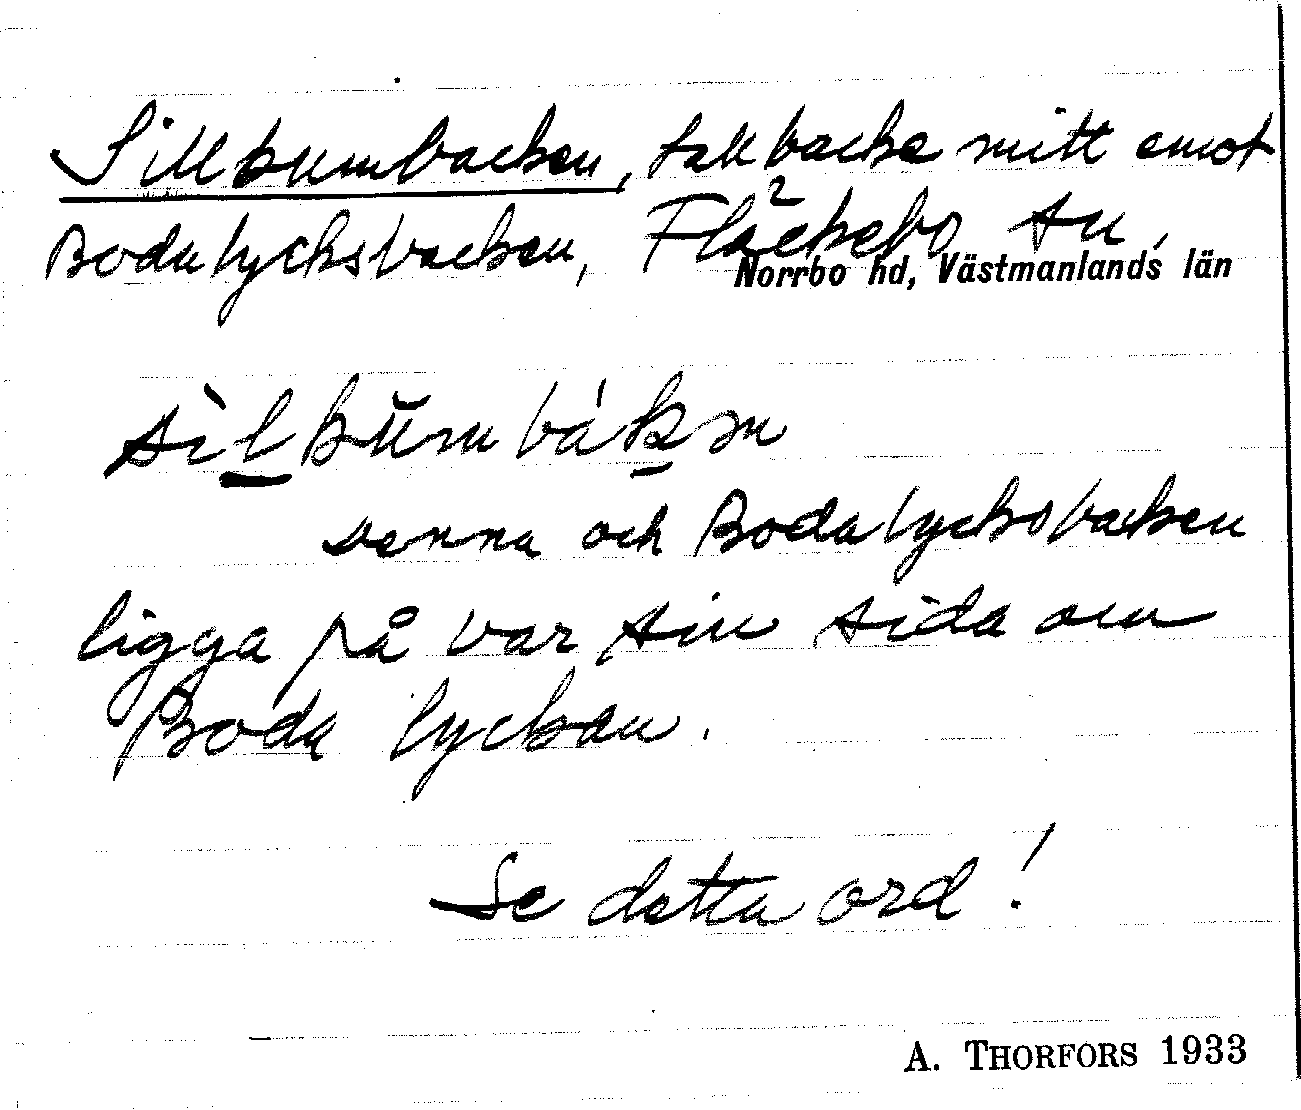 Sillkumbacken, takbacke mitt emot
Bodalycksbacken, Fläckebo sn,
Norrbo hd, Västmanlands län
sìlkŭmbákən
Denna och Bodalycksbacken
ligga på var sin sida om
Boda lyckan.
Se detta ord!
A. THORFORS 1933